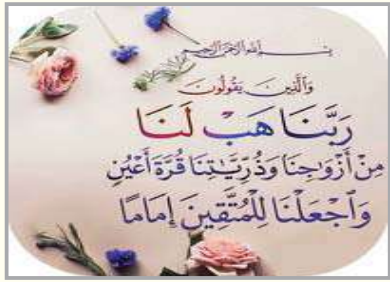 بسم الله الرحمن الرحيم
وَالَّذِينَ يَقُولُونَ
رَبَّنَا هَبْ لَنَا
مِنْ أَزْوَاجِنَا وَذُرِّيَّاتِنَا قُرَّةَ أَعْيُنٍ
وَاجْعَلْنَا لِلْمُتَّقِينَ إِمَامًا